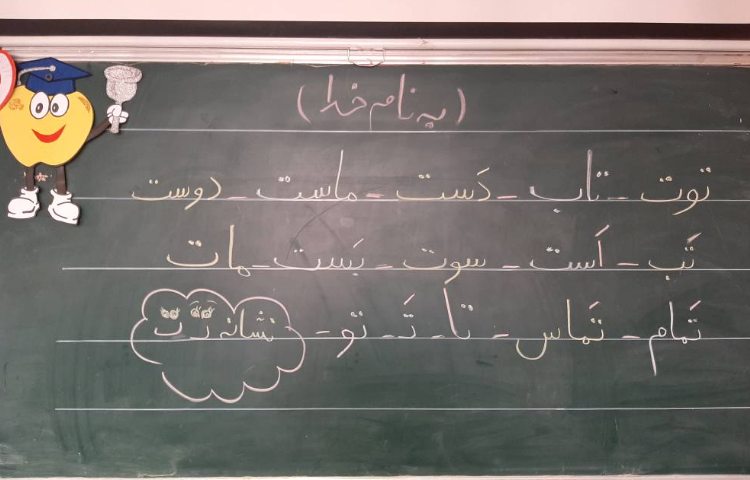 (به نام خدا)
توت - تاب - دَست - ماست - دوست
تَب - اَست - سوت - بَست - مات
تَمام - تَماس - تا - تَـ - تو - نشانه تـ ت